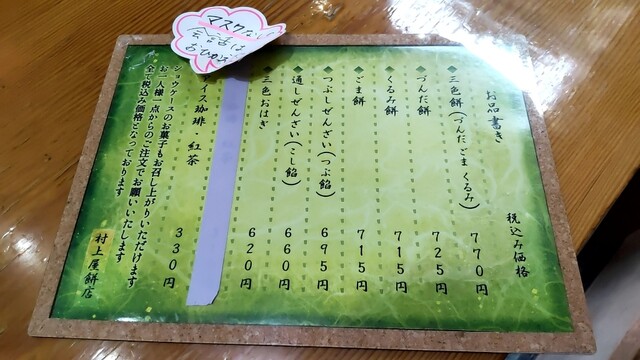 マスクない
会話は
おひかえ
お品書き
税込み価格
三色餅(づんだごまくるみ) 770円
づんだ餅 725円
くるみ餅 715円
ごま餅 715円
つぶしぜんざい(つぶ餡) 695円
通しぜんざい(こし餡) 660円
三色おはぎ 620円
イス珈琲・紅茶 330円
ショウケースのお菓子もお召し上がりいただけます
お一人様一点からのご注文でお願いいたします
全て税込み価格となっております
村上屋餅店